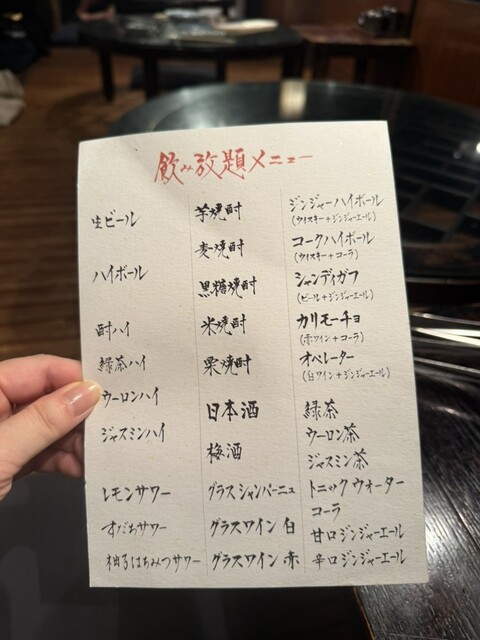 飲み放題メニュー
生ビール
ハイボール
酎ハイ
緑茶ハイ
ウーロンハイ
ジャスミンハイ
レモンサワー
すだちサワー
柚子はちみつサワー
芋焼酎
麦焼酎
黒糖焼酎
米焼酎
栗焼酎
日本酒
梅酒
グラスシャンパーニュ
グラスワイン 白
グラスワイン 赤
ジンジャーハイボール
(ウィスキー+ジンジャーエール)
コークハイボール
(ウィスキー+コーラ)
シャンディガフ
(ビール+ジンジャーエール)
カリモーチョ
(赤ワイン+コーラ)
オペレーター
(白ワイン+ジンジャーエール)
緑茶
ウーロン茶
ジャスミン茶
トニックウォーター
コーラ
甘口ジンジャーエール
辛口ジンジャーエール